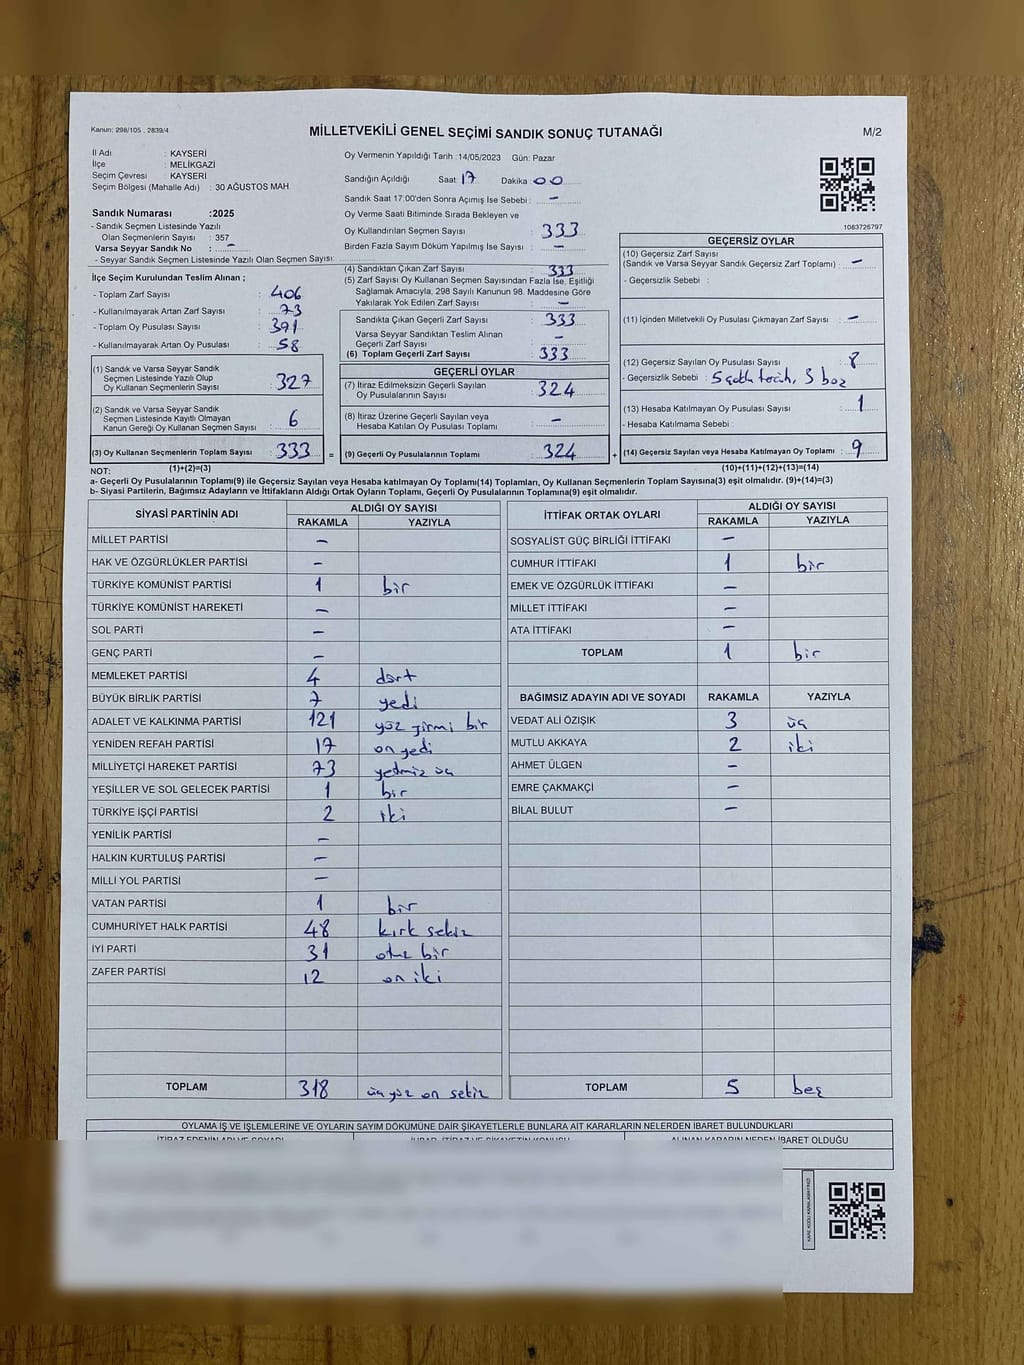 Kanun: 298/105 , 2839/4
MİLLETVEKİLİ GENEL SEÇİMİ SANDIK SONUÇ TUTANAĞI
M/2
İl Adı : KAYSERİ
İlçe : MELİKGAZİ
Seçim Çevresi : KAYSERİ
Seçim Bölgesi (Mahalle Adı) : 30 AĞUSTOS MAH
Sandık Numarası :2025
- Sandık Seçmen Listesinde Yazılı
Olan Seçmenlerin Sayısı : 357
Varsa Seyyar Sandık No : –
- Seyyar Sandık Seçmen Listesinde Yazılı Olan Seçmen Sayısı:
Oy Vermenin Yapıldığı Tarih :14/05/2023 Gün: Pazar
Sandığın Açıldığı Saat : 17 Dakika : 00
Sandık Saat 17:00'den Sonra Açımış İse Sebebi : –
Oy Verme Saati Bitiminde Sırada Bekleyen ve
Oy Kullandırılan Seçmen Sayısı : 333
Birden Fazla Sayım Döküm Yapılmış İse Sayısı : –
1083726797
İlçe Seçim Kurulundan Teslim Alınan ;
- Toplam Zarf Sayısı : 406
- Kullanılmayarak Artan Zarf Sayısı : 73
- Toplam Oy Pusulası Sayısı : 391
- Kullanılmayarak Artan Oy Pusulası : 58
(1) Sandık ve Varsa Seyyar Sandık
Seçmen Listesinde Yazılı Olup
Oy Kullanan Seçmenlerin Sayısı : 327
(2) Sandık ve Varsa Seyyar Sandık
Seçmen Listesinde Kayıtlı Olmayan
Kanun Gereği Oy Kullanan Seçmen Sayısı : 6
(3) Oy Kullanan Seçmenlerin Toplam Sayısı : 333
(4) Sandıktan Çıkan Zarf Sayısı : 333
(5) Zarf Sayısı Oy Kullanan Seçmen Sayısından Fazla İse, Eşitliği
Sağlamak Amacıyla; 298 Sayılı Kanunun 98. Maddesine Göre
Yakılarak Yok Edilen Zarf Sayısı : –
Sandıkta Çıkan Geçerli Zarf Sayısı : 333
Varsa Seyyar Sandıktan Teslim Alınan
Geçerli Zarf Sayısı : –
(6) Toplam Geçerli Zarf Sayısı : 333
GEÇERLİ OYLAR
(7) İtiraz Edilmeksizin Geçerli Sayılan
Oy Pusulalarının Sayısı : 324
(8) İtiraz Üzerine Geçerli Sayılan veya
Hesaba Katılan Oy Pusulası Toplamı : –
= (9) Geçerli Oy Pusulalarının Toplamı : 324 +
GEÇERSİZ OYLAR
(10) Geçersiz Zarf Sayısı
(Sandık ve Varsa Seyyar Sandık Geçersiz Zarf Toplamı) : –
- Geçersizlik Sebebi :
(11) İçinden Milletvekili Oy Pusulası Çıkmayan Zarf Sayısı : –
(12) Geçersiz Sayılan Oy Pusulası Sayısı : 8
- Geçersizlik Sebebi : 5 çoklu tercih, 3 boş
(13) Hesaba Katılmayan Oy Pusulası Sayısı : 1
- Hesaba Katılmama Sebebi :
(14) Geçersiz Sayılan veya Hesaba Katılmayan Oy Toplamı : 9
NOT: (1)+(2)=(3)
(10)+(11)+(12)+(13)=(14)
a- Geçerli Oy Pusulasının Toplamı(9) ile Geçersiz Sayılan veya Hesaba katılmayan Oy Toplamı(14) Toplamları, Oy Kullanan Seçmenlerin Toplam Sayısına(3) eşit olmalıdır. (9)+(14)=(3)
b- Siyasi Partilerin, Bağımsız Adayların ve İttifakların Aldığı Ortak Oyların Toplamı, Geçerli Oy Pusulalarının Toplamına(9) eşit olmalıdır.
SİYASİ PARTİNİN ADI ALDIĞI OY SAYISI
RAKAMLA YAZIYLA
MİLLET PARTİSİ –
HAK VE ÖZGÜRLÜKLER PARTİSİ –
TÜRKİYE KOMÜNİST PARTİSİ 1 bir
TÜRKİYE KOMÜNİST HAREKETİ –
SOL PARTİ –
GENÇ PARTİ –
MEMLEKET PARTİSİ 4 dört
BÜYÜK BİRLİK PARTİSİ 7 yedi
ADALET VE KALKINMA PARTİSİ 121 yüz yirmi bir
YENİDEN REFAH PARTİSİ 17 on yedi
MİLLİYETÇİ HAREKET PARTİSİ 73 yetmiş üç
YEŞİLLER VE SOL GELECEK PARTİSİ 1 bir
TÜRKİYE İŞÇİ PARTİSİ 2 iki
YENİLİK PARTİSİ –
HALKIN KURTULUŞ PARTİSİ –
MİLLİ YOL PARTİSİ –
VATAN PARTİSİ 1 bir
CUMHURİYET HALK PARTİSİ 48 kırk sekiz
İYİ PARTİ 31 otuz bir
ZAFER PARTİSİ 12 on iki
TOPLAM 318 üç yüz on sekiz
İTTİFAK ORTAK OYLARI ALDIĞI OY SAYISI
RAKAMLA YAZIYLA
SOSYALİST GÜÇ BİRLİĞİ İTTİFAKI –
CUMHUR İTTİFAKI 1 bir
EMEK VE ÖZGÜRLÜK İTTİFAKI –
MİLLET İTTİFAKI –
ATA İTTİFAKI –
TOPLAM 1 bir
BAĞIMSIZ ADAYIN ADI VE SOYADI RAKAMLA YAZIYLA
VEDAT ALİ ÖZIŞIK 3 üç
MUTLU AKKAYA 2 iki
AHMET ÜLGEN –
EMRE ÇAKMAKÇİ –
BİLAL BULUT –
TOPLAM 5 beş
OYLAMA İŞ VE İŞLEMLERİNE VE OYLARIN SAYIM DÖKÜMÜNE DAİR ŞİKAYETLERLE BUNLARA AİT KARARLARIN NELERDEN İBARET BULUNDUKLARI
İTİRAZ EDENİN ADI VE SOYADI İHBAR, İTİRAZ VE ŞİKAYETİN KONUSU ALINAN KARARIN NEDEN İBARET OLDUĞU